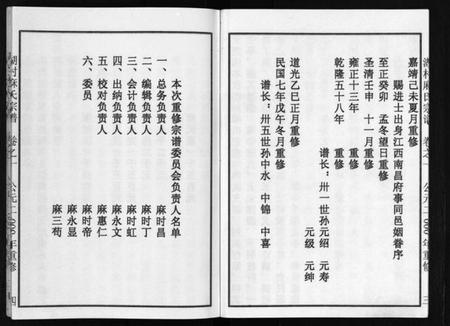 湖村麻氏宗谱 卷之一 公元二000年重修 三
嘉靖己未夏月重修
赐进士出身江西南昌府事同邑姻眷序
至正癸卯 孟冬望日重修
圣清壬申 十一月重修
雍正十三年 重修
乾隆五十八年 重修
谱长：卅一世孙元绍 元寿
元级 元绅
道光乙巳正月重修
民国七年戊午冬月重修
谱长：卅五世孙中水 中锦 中喜
本次重修宗谱委员会负责人名单
一、总务负责人 麻时昌
二、编辑负责人 麻时丁
三、会计负责人 麻时虹
四、出纳负责人 麻永文
五、校对负责人 麻惠仁
六、委员 麻时帝
麻永显
麻三苟
湖村麻氏宗谱 卷之一 公元二000年重修 四